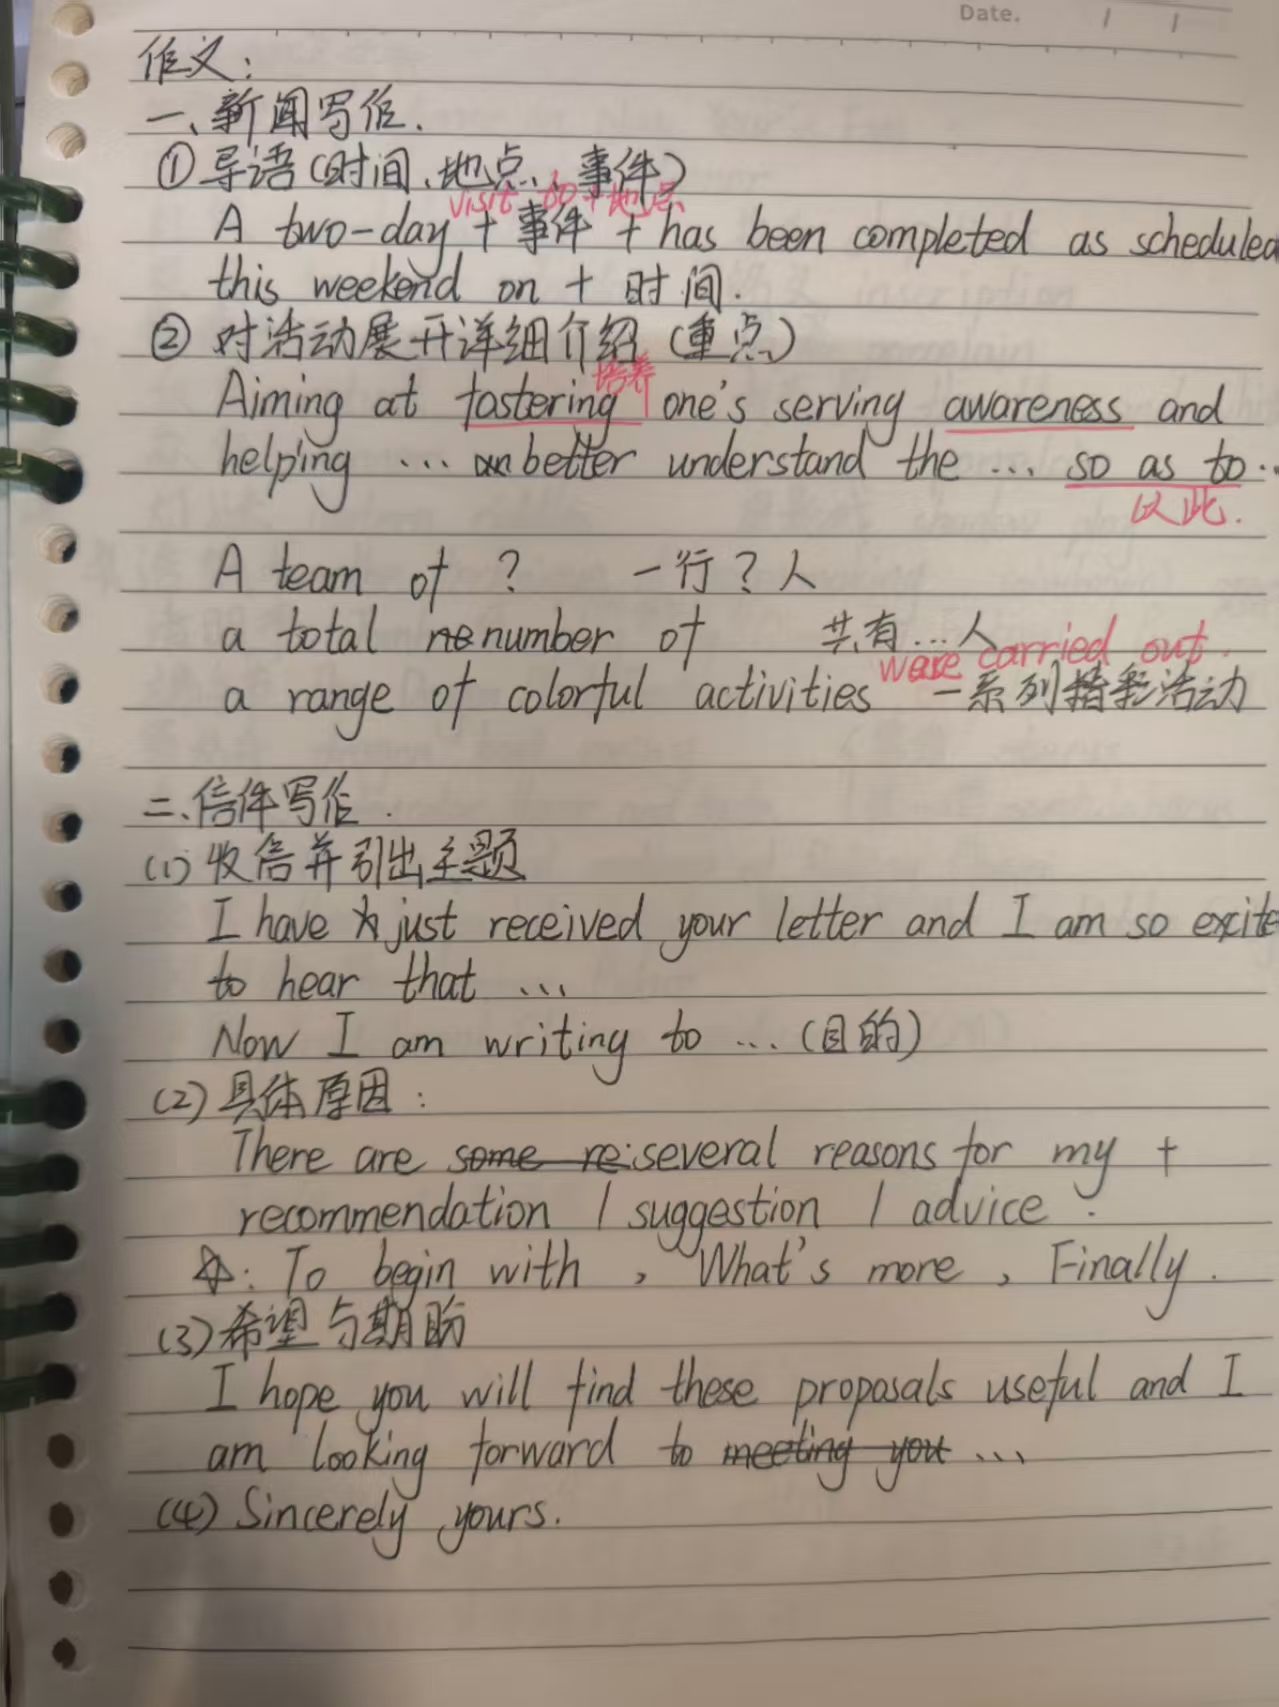 Date. / /
作文:
一、新闻写作.
①导语(时间、地点、事件)
visit to +地点
A two-day + 事件 + has been completed as scheduled
this weekend on + 时间.
② 对活动展开详细介绍 (重点)
培养
Aiming at fostering one's serving awareness and
helping ... better understand the ... so as to ..
以此.
A team of ? 一行?人
a total number of 共有...人
were carried out.
a range of colorful activities 一系列精彩活动
二、信件写作.
(1) 收信并引出主题
I have just received your letter and I am so excite
to hear that ...
Now I am writing to ... (目的)
(2) 具体原因:
There are some re several reasons for my +
recommendation / suggestion / advice.
☆: To begin with , What's more , Finally.
(3) 希望与期盼
I hope you will find these proposals useful and I
am looking forward to meeting you ...
(4) Sincerely yours.